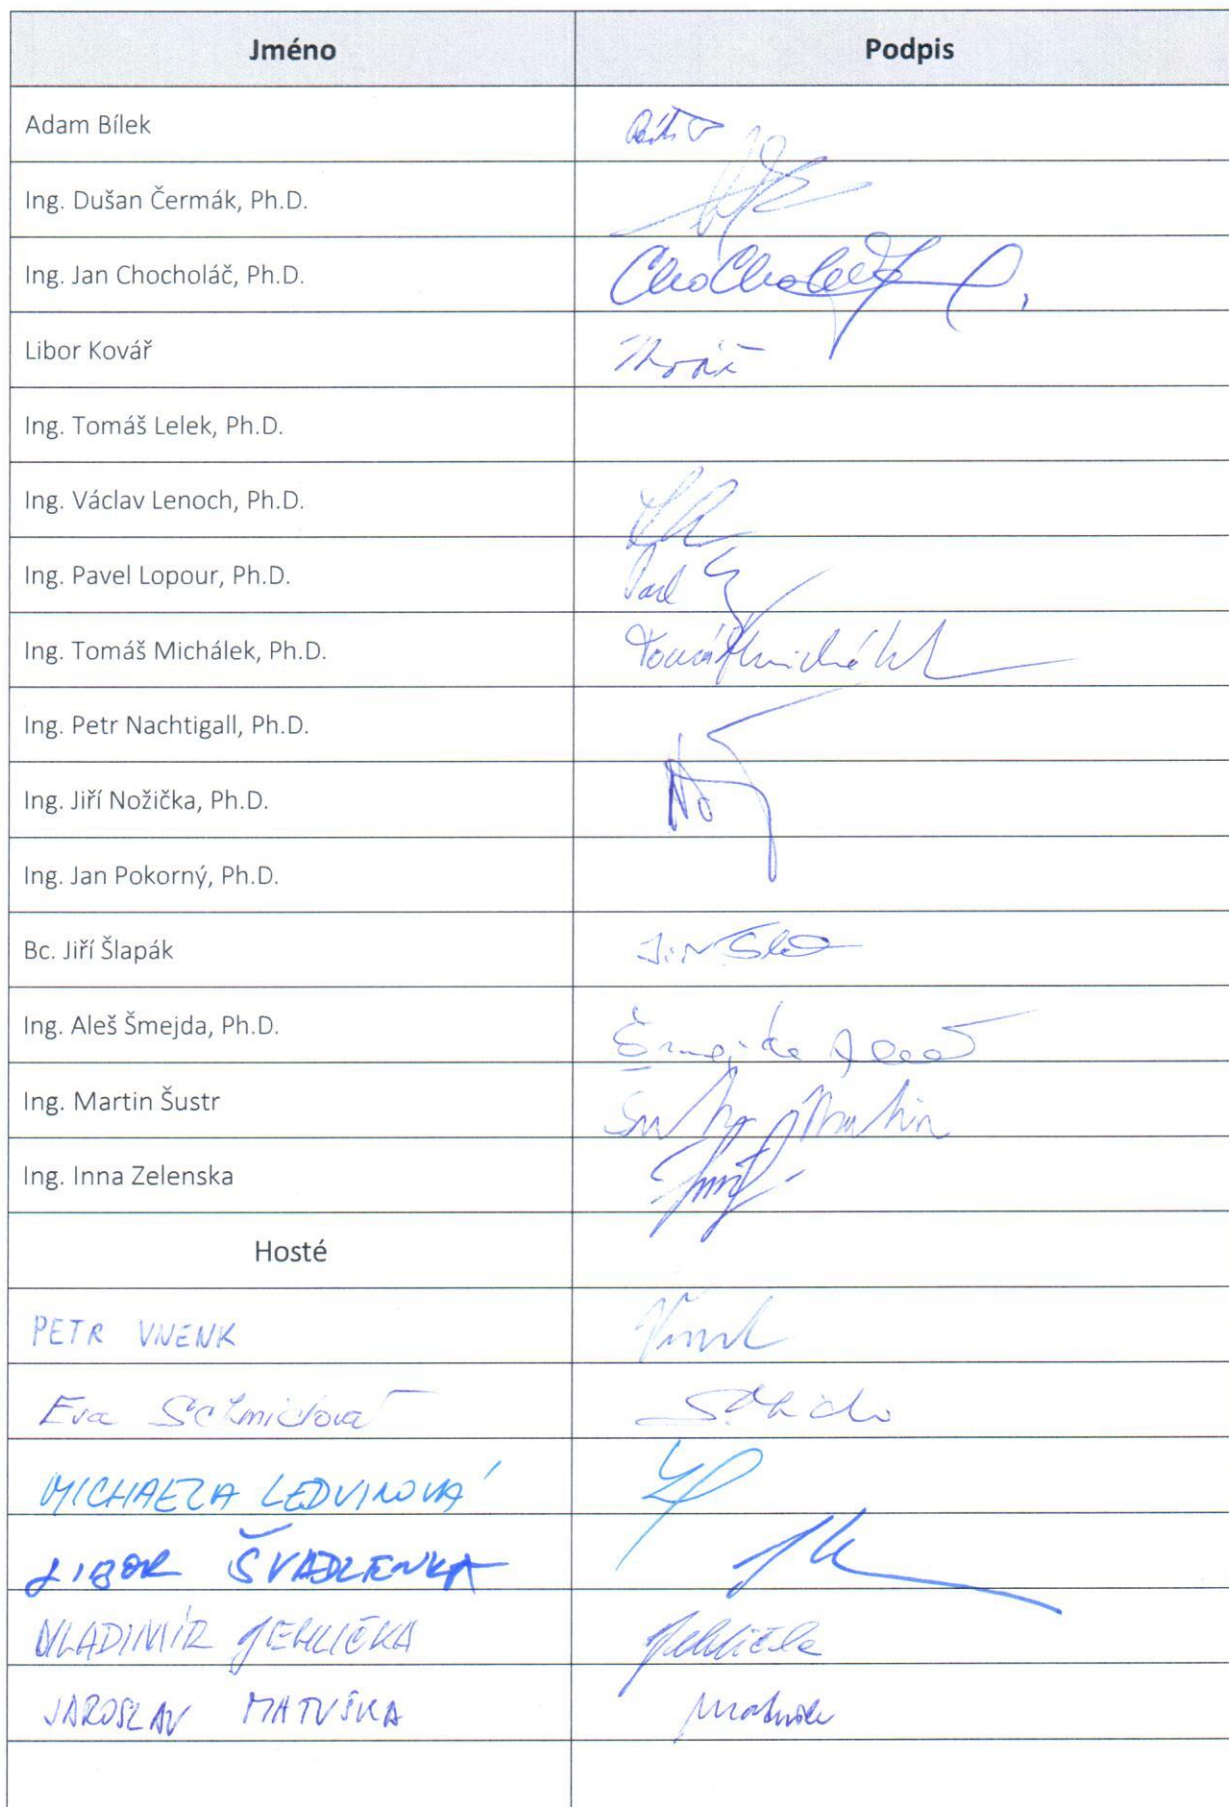 Jméno Podpis
Adam Bílek
Ing. Dušan Čermák, Ph.D.
Ing. Jan Chocholáč, Ph.D. Chocholáč
Libor Kovář Kovář
Ing. Tomáš Lelek, Ph.D.
Ing. Václav Lenoch, Ph.D.
Ing. Pavel Lopour, Ph.D. Pavel
Ing. Tomáš Michálek, Ph.D. Tomáš Michálek
Ing. Petr Nachtigall, Ph.D.
Ing. Jiří Nožička, Ph.D.
Ing. Jan Pokorný, Ph.D.
Bc. Jiří Šlapák
Ing. Aleš Šmejda, Ph.D. Šmejda Aleš
Ing. Martin Šustr Šustr Martin
Ing. Inna Zelenska
Hosté
PETR VNENK Vnenk
Eva Schmidová
MICHAELA LEDVINOVÁ
LIBOR ŠVADLENKA
VLADIMÍR JEHLIČKA Jehlička
JAROSLAV MATUŠKA Matuška